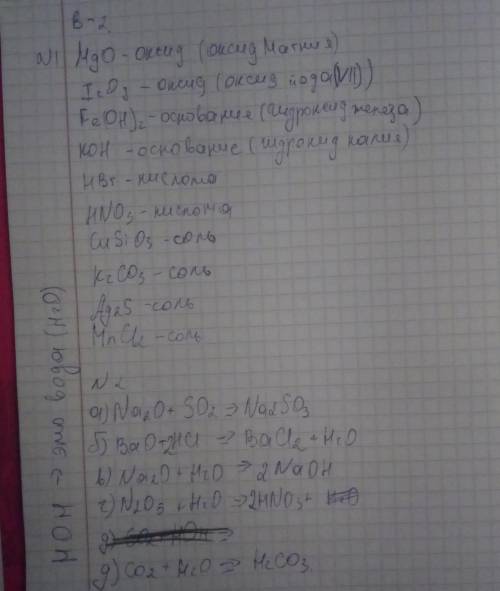 В-2
N1 MgO - оксид (оксид магния)
I2O7 - оксид (оксид йода(VII))
Fe(OH)2 - основания (гидроксид железа)
KOH - основание (гидроксид калия)
HBr - кислота
HNO3 - кислота
CuSiO3 - соль
K2CO3 - соль
Ag2S - соль
MnCl2 - соль
N2
а) Na2O + SO2 => Na2SO3
б) BaO + 2HCl => BaCl2 + H2O
в) Na2O + H2O => 2NaOH
г) N2O5 + H2O => 2HNO3 +
д) CO2 + HOH =>
д) CO2 + H2O => H2CO3
HOH -> это вода (H2O)